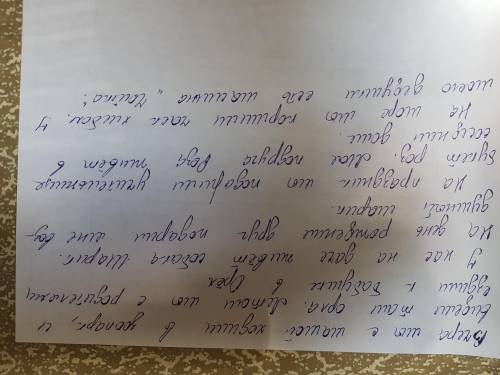 Вчера мы с мамой ходили в зоопарк, и
видели там орла. Летом мы с родителями
ездили к бабушке в Орёл.
У нас на даче живёт собака Шарик.
На день рождения друг подарил мне воз-
душный шарик.
На праздник мы подарили учительнице
букет роз. Моя подруга Роза живёт в
соседнем доме.
На море мы кормили чаек хлебом. У
моего дедушки есть машина "Чайка".